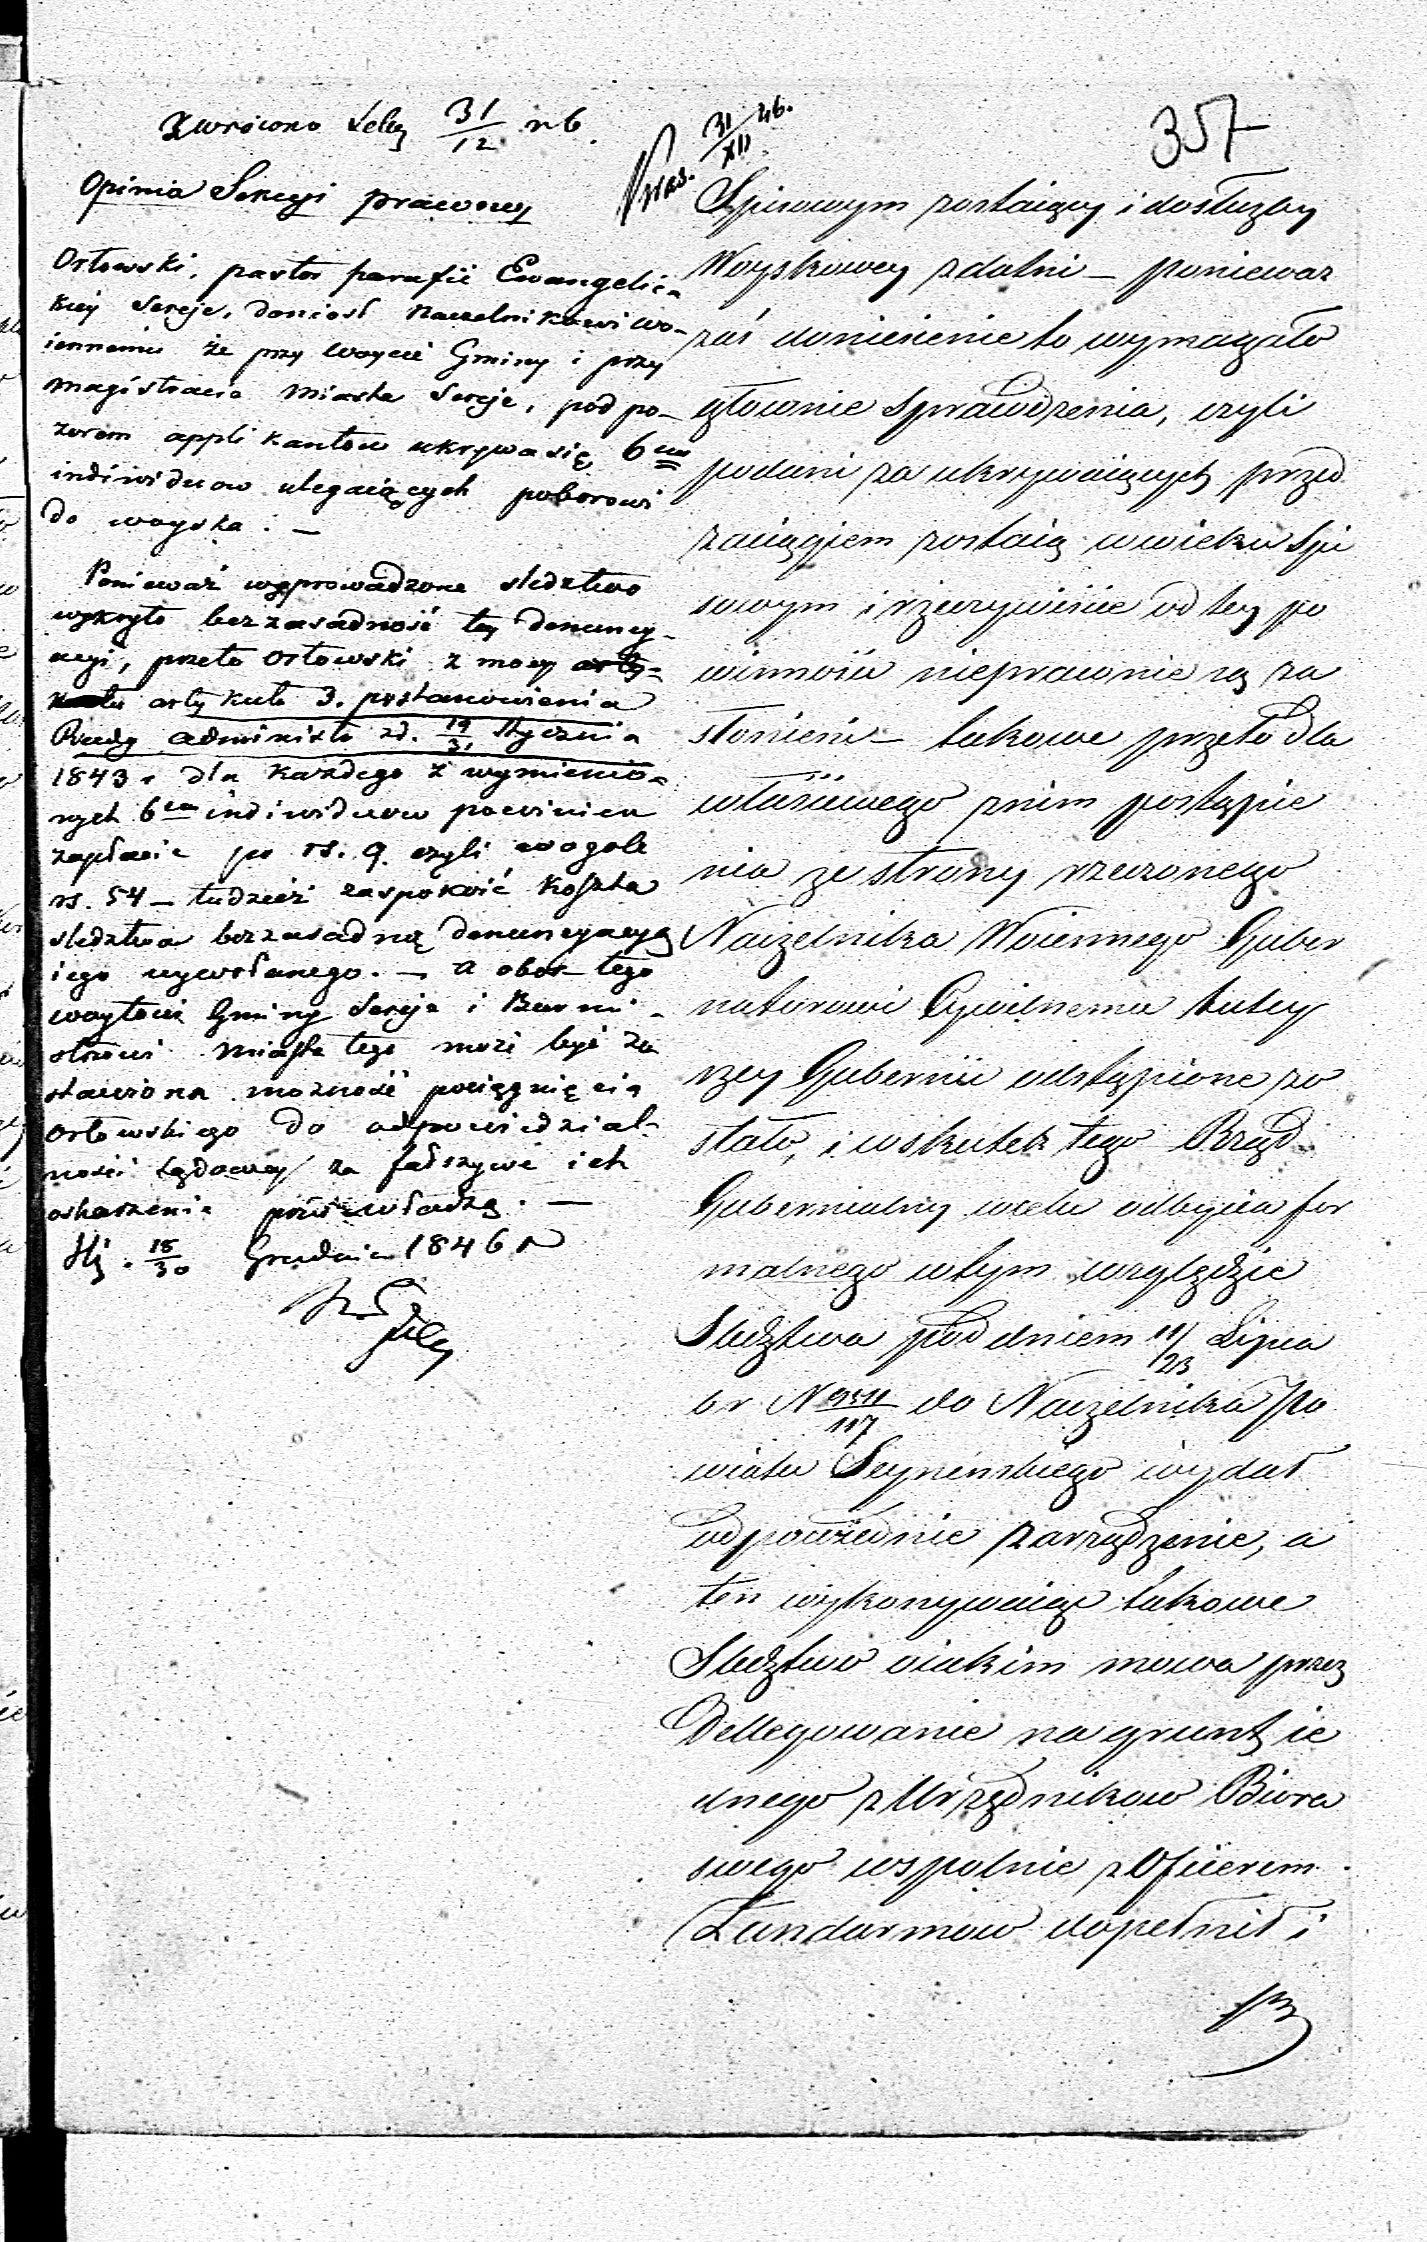 357
Zwrócono Sekcy 31/12 r 46.
31/XII 46.
Opinia Sekcyi prawney
Orłowski, pastor parafii Ewangelic-
kiey Sereje, doniosł Naczelnikowi Wo-
iennemu że przy Woycie Gminy i przy
Magistracie Miasta Sereje, pod po-
zorem applikantow ukrywa się 6ciu
indiwiduow ulegaiących poborowi
do woyska. —
Ponieważ wyprowadzone sledztwo
wykryło bezzasadność tey denuncy-
acyi, przeto Orłowski z mocy
artykułu 3. postanowienia
Rady administr zd. 19/31 Stycznia
1843 r dla każdego z wymienio-
nych 6ciu indiwiduow powinien
zapłacić po rs. 9 czyli wogole
rs. 54 — tudzież zaspokoić koszta
sledztwa bezzasadną denuncyacyą
iego wywołanego. — a obok tego
woytowi Gminy Sereje i Burmi-
strzowi Miasta tego może być zo
stawiona możność pociągnięcia
Orłowskiego do odpowiedzial-
ności sądowey za fałszywe ich
oskarzenie przed władzą. —
18/30 Grudnia 1846 r
Spisowym zostaiący i dosłużby
Woyskowey zdatni — poniewaz
zaś doniesienie to wymagało
głownie sprawdzenia, czyli
podani za ukrywaiących przed
zaciągiem zostaią w wieku Spi
sowym i rzeczywiście od tey po
winności nieprawnie są za
słonieni — takowe przeto dla
właściwego z nim postąpie
nia ze strony rzeczonego
Naczelnika Woiennego Guber
natorowi Cywilnemu tutey
szey Gubernii odstąpione zo
stało, i wskutek tego Rząd
Gubernialny wcelu odbycia for
malnego wtym względzie
Sledztwa pod dniem 11/23 Lipca
b r N 9511/117 do Naczelnika Po
wiatu Seynenskiego wydał
odpowiednie zarządzenie, a
ten wykonywaiąc takowe
Sledztwo oiakim mowa przez
Dellegowanie na grunt ie
dnego z Urzędnikow Biora
swego wspolnie z Oficerem
Żandarmow dopełnił i